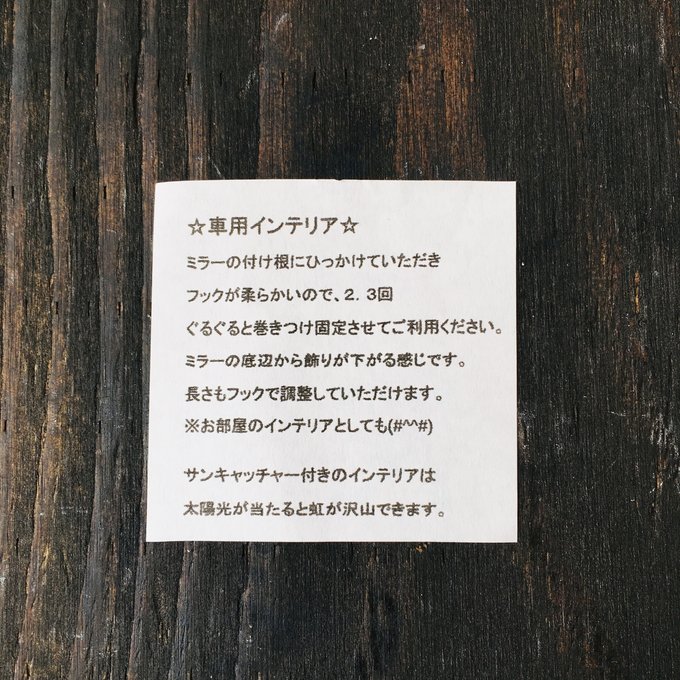 ☆車用インテリア☆
ミラーの付け根にひっかけていただき
フックが柔らかいので、2．3回
ぐるぐると巻きつけ固定させてご利用ください。
ミラーの底辺から飾りが下がる感じです。
長さもフックで調整していただけます。
※お部屋のインテリアとしても(#^^#)
サンキャッチャー付きのインテリアは
太陽光が当たると虹が沢山できます。